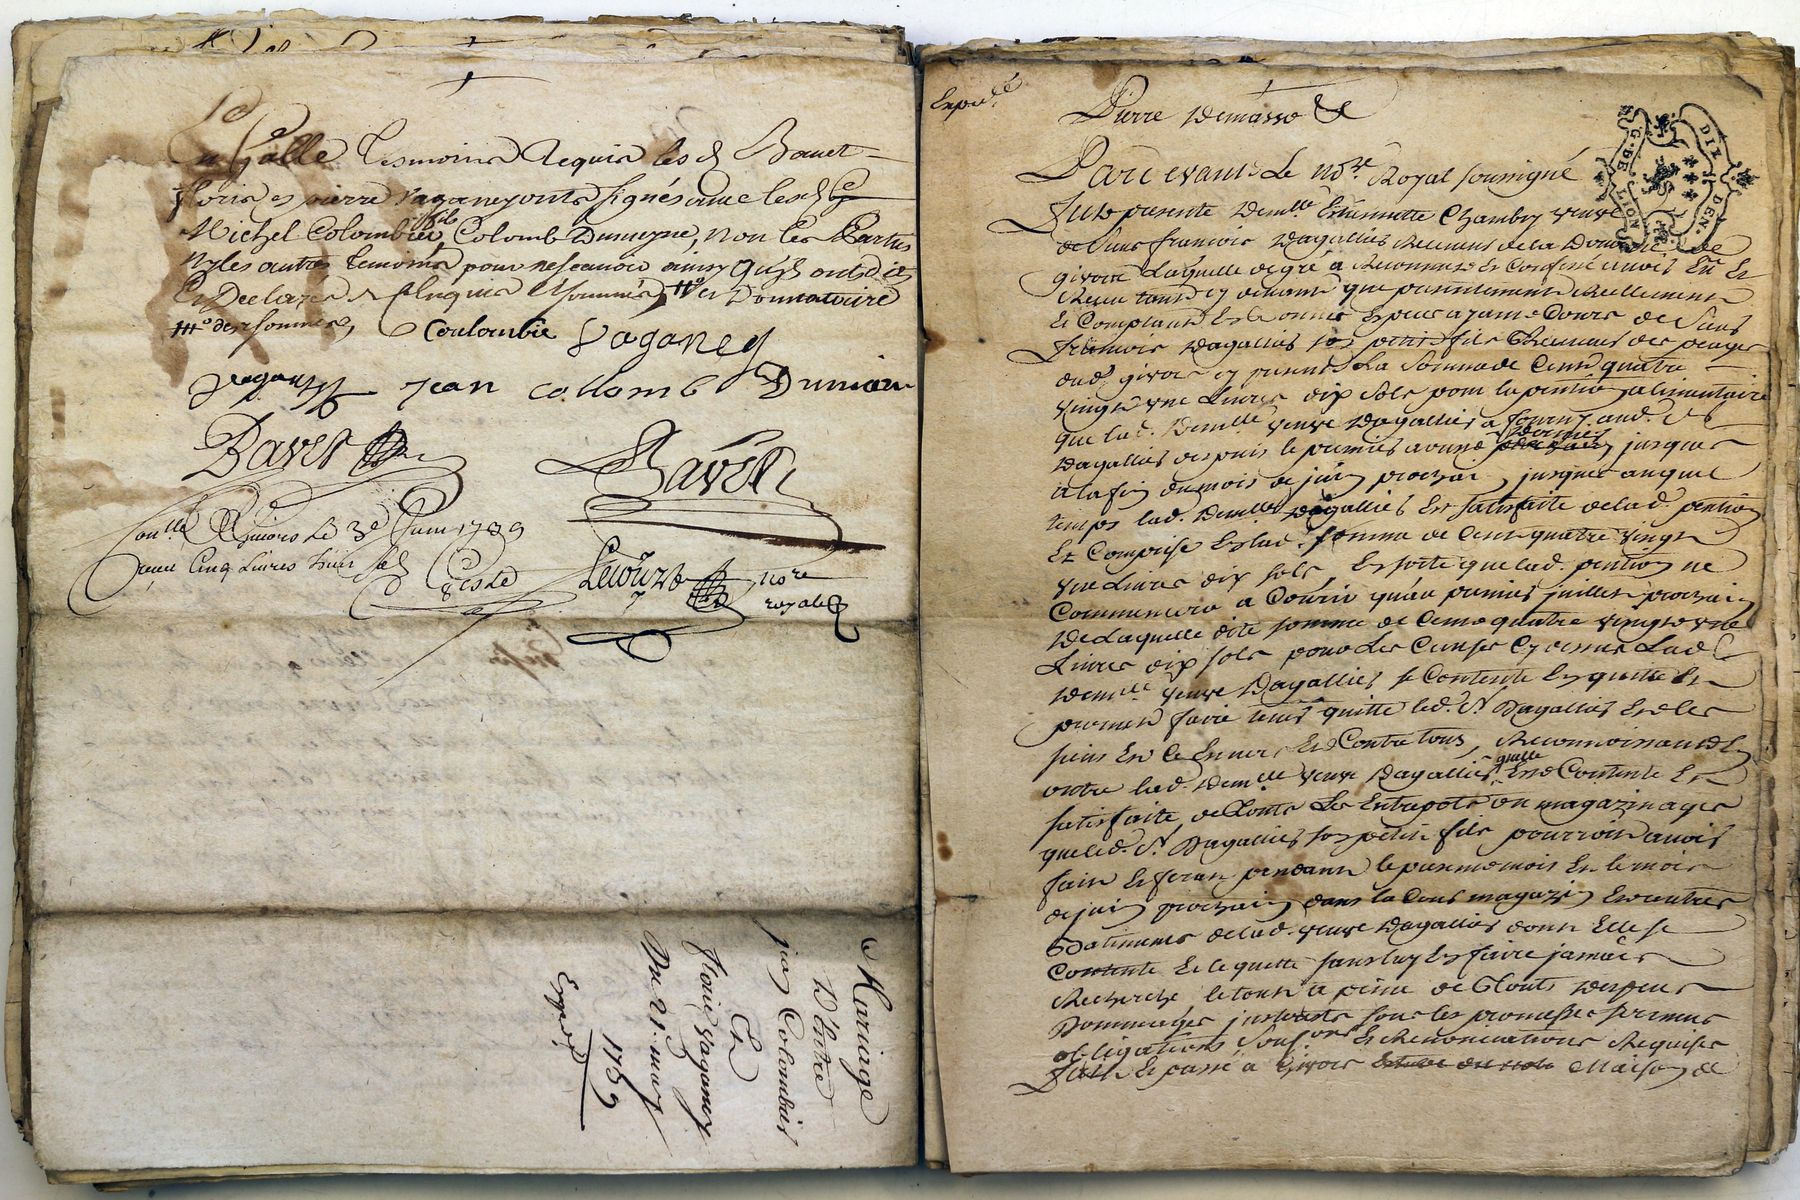 La Salle tesmoins Requis les d Bavet
floris et pierre vaganey onts signés avec lesd
Michel Colombier fils Colomb Dumeyne, non les Parties
ny les autres temoins pour ne scavoir ainsy qu'ils onts dit
Et Declarés de ce Enquis Et sommés, Donnataire
des sommes, Coulombie vaganey
vaganey jean collomb Dumaine
Bavet Bavet
Conllé à Givors le 3e Juin 1739
Reçu Cinq Livres huit sols
Lecourt nore
royal
Mariage
D'Entre
Colombier
Et
fleurie vaganey
Du 21. may
1739
Expedié
Expedié
Pierre Demasso
Pardevant Le nore Royal soussigné
fut presente Demlle Estiennette Chambry veuve
de Sieur francois Dagallier Receveur de la Douane de
givors Laquelle de gré a Reconneu Et Confessé avoir Eu Et
Receu tant cy devant que presentement Reellement
Et Comptant Et Bonnes Especes ayant Cours de Sieur
francois Dagallier son petit fils Receveur des peages
dud. givors cy present La Somme de Cent quatre
vingt une Livres dix sols pour la pention alimentaire
que lad. Demlle veuve Dagallier a fourny aud. Sr
Dagallier depuis le premier avoust dernier jusques
a la fin du mois de juin prochain, jusques auquel
temps lad. Demlle Dagallier Est satisfaite de lad. pention
Et Comprise En lad. somme de Cent quatre vingt
une Livres dix sols, En sorte que lad. pention ne
Commencera a Courir qu'au premier juillet prochain
De Laquelle dite somme de Cent quatre vingt une
Livres dix sols pour Les Causes cy dessus Lad.
Demlle veuve Dagallier se Contente Et quitte Et
promet faire tenir quitte led. Sr Dagallier Et les
siens En Et Envers Et Contre tous, Reconnoissant En
outre lad. Demlle veuve Dagallier quelle Est Contente Et
satisfaite de touts Les Entrepots ou magazinages
que led. Sr Dagallier son petit fils pourroit avoir
fait Et feroit pendant le present mois Et le mois
de juin prochain dans la Cour magazin Et autres
Batiments de lad. veuve Dagallier dont Elle se
Contente Et le quitte sans luy En faire jamais
Recherche, le tout a peine de touts Despens
Dommages jnterests sous les promesses serment
obligations Soumons Et Renonciations Requises
fait Et passé a Givors Maison de